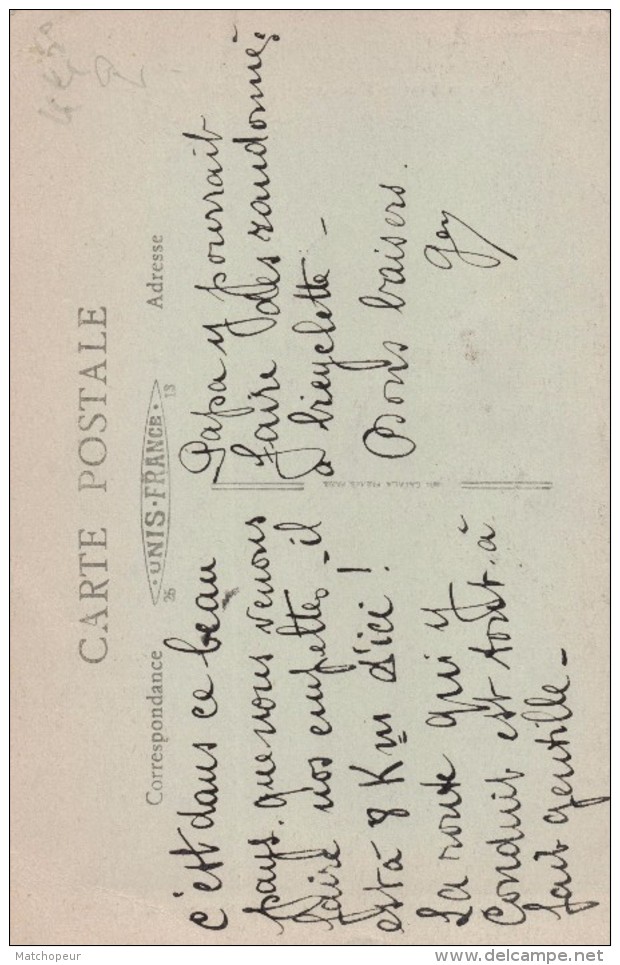 CARTE POSTALE
UNIS-FRANCE
26
13
Correspondance
Adresse
c'est dans ce beau
pays. que nous venons
faire nos emplettes, il
est à 8 Km d'ici !
La route qui y
conduit est tout. à
fait gentille -
Papa y pourrait
faire des randonnées
à bicyclette -
Bons baisers.
Matchopeur
delcampe.net